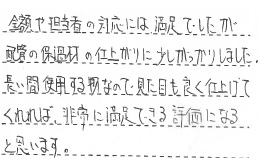 金額や担当者の対応には満足でしたが
配管の保温材の仕上がりに少しがっかりしました。
長い間使用する物なので見た目も良く仕上げて
くれれば、非常に満足できる評価になる
と思います。